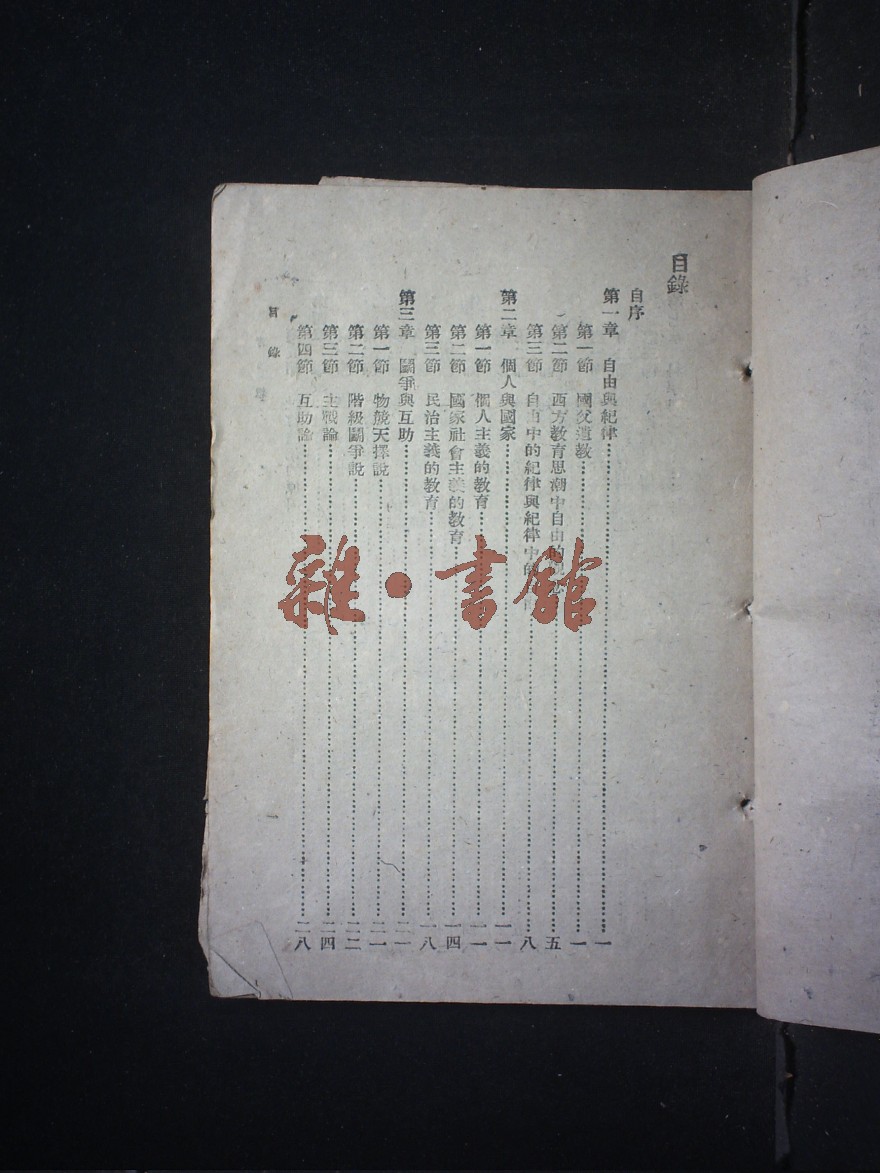 目錄
自序
第一章 自由與紀律……一
第一節 國父遺教……一
第二節 西方教育思潮中自由的……五
第三節 自由中的紀律與紀律中的……八
第二章 個人與國家……一一
第一節 個人主義的教育……一一
第二節 國家社會主義的教育……一四
第三節 民治主義的教育……一八
第三章 鬭爭與互助……二一
第一節 物競天擇說……二一
第二節 階級鬭爭說……二二
第三節 主戰論……二四
第四節 互助論……二八
目錄
一
雜·書館